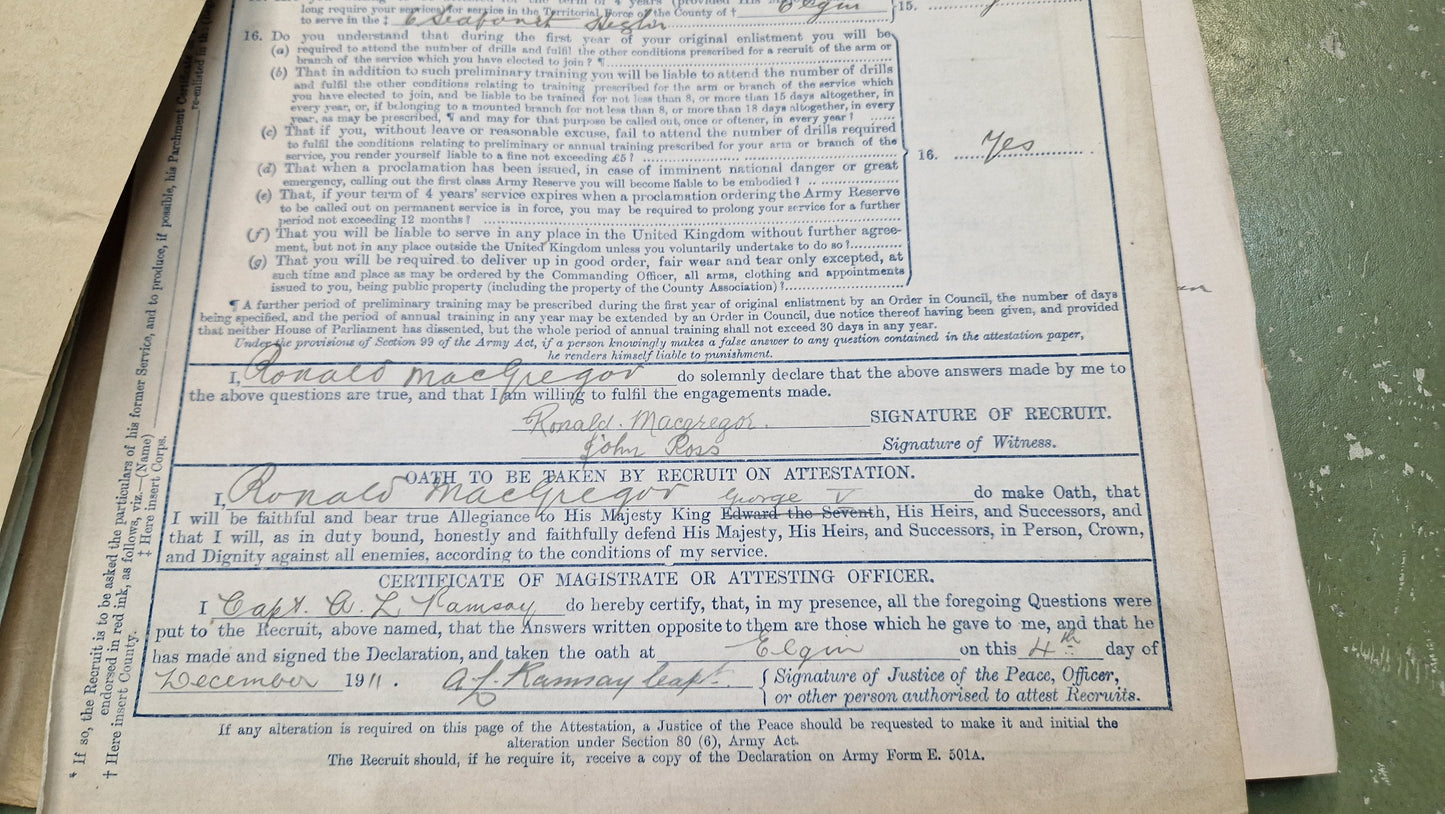 long require your services) for service in the Territorial Force of the County of † Elgin } 15.
to serve in the ‡
16. Do you understand that during the first year of your original enlistment you will be
(a) required to attend the number of drills and fulfil the other conditions prescribed for a recruit of the arm or
branch of the service which you have elected to join? ¶
(b) That in addition to such preliminary training you will be liable to attend the number of drills
and fulfil the other conditions relating to training prescribed for the arm or branch of the service which
you have elected to join, and be liable to be trained for not less than 8, or more than 15 days altogether, in
every year, or, if belonging to a mounted branch for not less than 8, or more than 18 days altogether, in every
year, as may be prescribed, ¶ and may for that purpose be called out, once or oftener, in every year?
(c) That if you, without leave or reasonable excuse, fail to attend the number of drills required
to fulfil the conditions relating to preliminary or annual training prescribed for your arm or branch of the
service, you render yourself liable to a fine not exceeding £5?
16. Yes
(d) That when a proclamation has been issued, in case of imminent national danger or great
emergency, calling out the first class Army Reserve you will become liable to be embodied?
(e) That, if your term of 4 years' service expires when a proclamation ordering the Army Reserve
to be called out on permanent service is in force, you may be required to prolong your service for a further
period not exceeding 12 months?
(f) That you will be liable to serve in any place in the United Kingdom without further agree-
ment, but not in any place outside the United Kingdom unless you voluntarily undertake to do so?
(g) That you will be required to deliver up in good order, fair wear and tear only excepted, at
such time and place as may be ordered by the Commanding Officer, all arms, clothing and appointments
issued to you, being public property (including the property of the County Association)?
¶ A further period of preliminary training may be prescribed during the first year of original enlistment by an Order in Council, the number of days
being specified, and the period of annual training in any year may be extended by an Order in Council, due notice thereof having been given, and provided
that neither House of Parliament has dissented, but the whole period of annual training shall not exceed 30 days in any year.
Under the provisions of Section 99 of the Army Act, if a person knowingly makes a false answer to any question contained in the attestation paper,
he renders himself liable to punishment.
I, Ronald MacGregor do solemnly declare that the above answers made by me to
the above questions are true, and that I am willing to fulfil the engagements made.
Ronald. Macgregor. SIGNATURE OF RECRUIT.
John Ross Signature of Witness.
OATH TO BE TAKEN BY RECRUIT ON ATTESTATION.
I, Ronald MacGregor George V do make Oath, that
I will be faithful and bear true Allegiance to His Majesty King Edward the Seventh, His Heirs, and Successors, and
that I will, as in duty bound, honestly and faithfully defend His Majesty, His Heirs, and Successors, in Person, Crown,
and Dignity against all enemies, according to the conditions of my service.
CERTIFICATE OF MAGISTRATE OR ATTESTING OFFICER.
I Capt. A. L Ramsay do hereby certify, that, in my presence, all the foregoing Questions were
put to the Recruit, above named, that the Answers written opposite to them are those which he gave to me, and that he
has made and signed the Declaration, and taken the oath at Elgin on this 4th day of
December 1911. A. L. Ramsay Capt. { Signature of Justice of the Peace, Officer,
or other person authorised to attest Recruits.
If any alteration is required on this page of the Attestation, a Justice of the Peace should be requested to make it and initial the
alteration under Section 80 (6), Army Act.
The Recruit should, if he require it, receive a copy of the Declaration on Army Form E. 501A.
* If so, the Recruit is to be asked the particulars of his former Service, and to produce, if possible, his Parchment Certificate
endorsed in red ink, as follows, viz.—(Name) re-enlisted in the
† Here insert County. ‡ Here insert Corps.